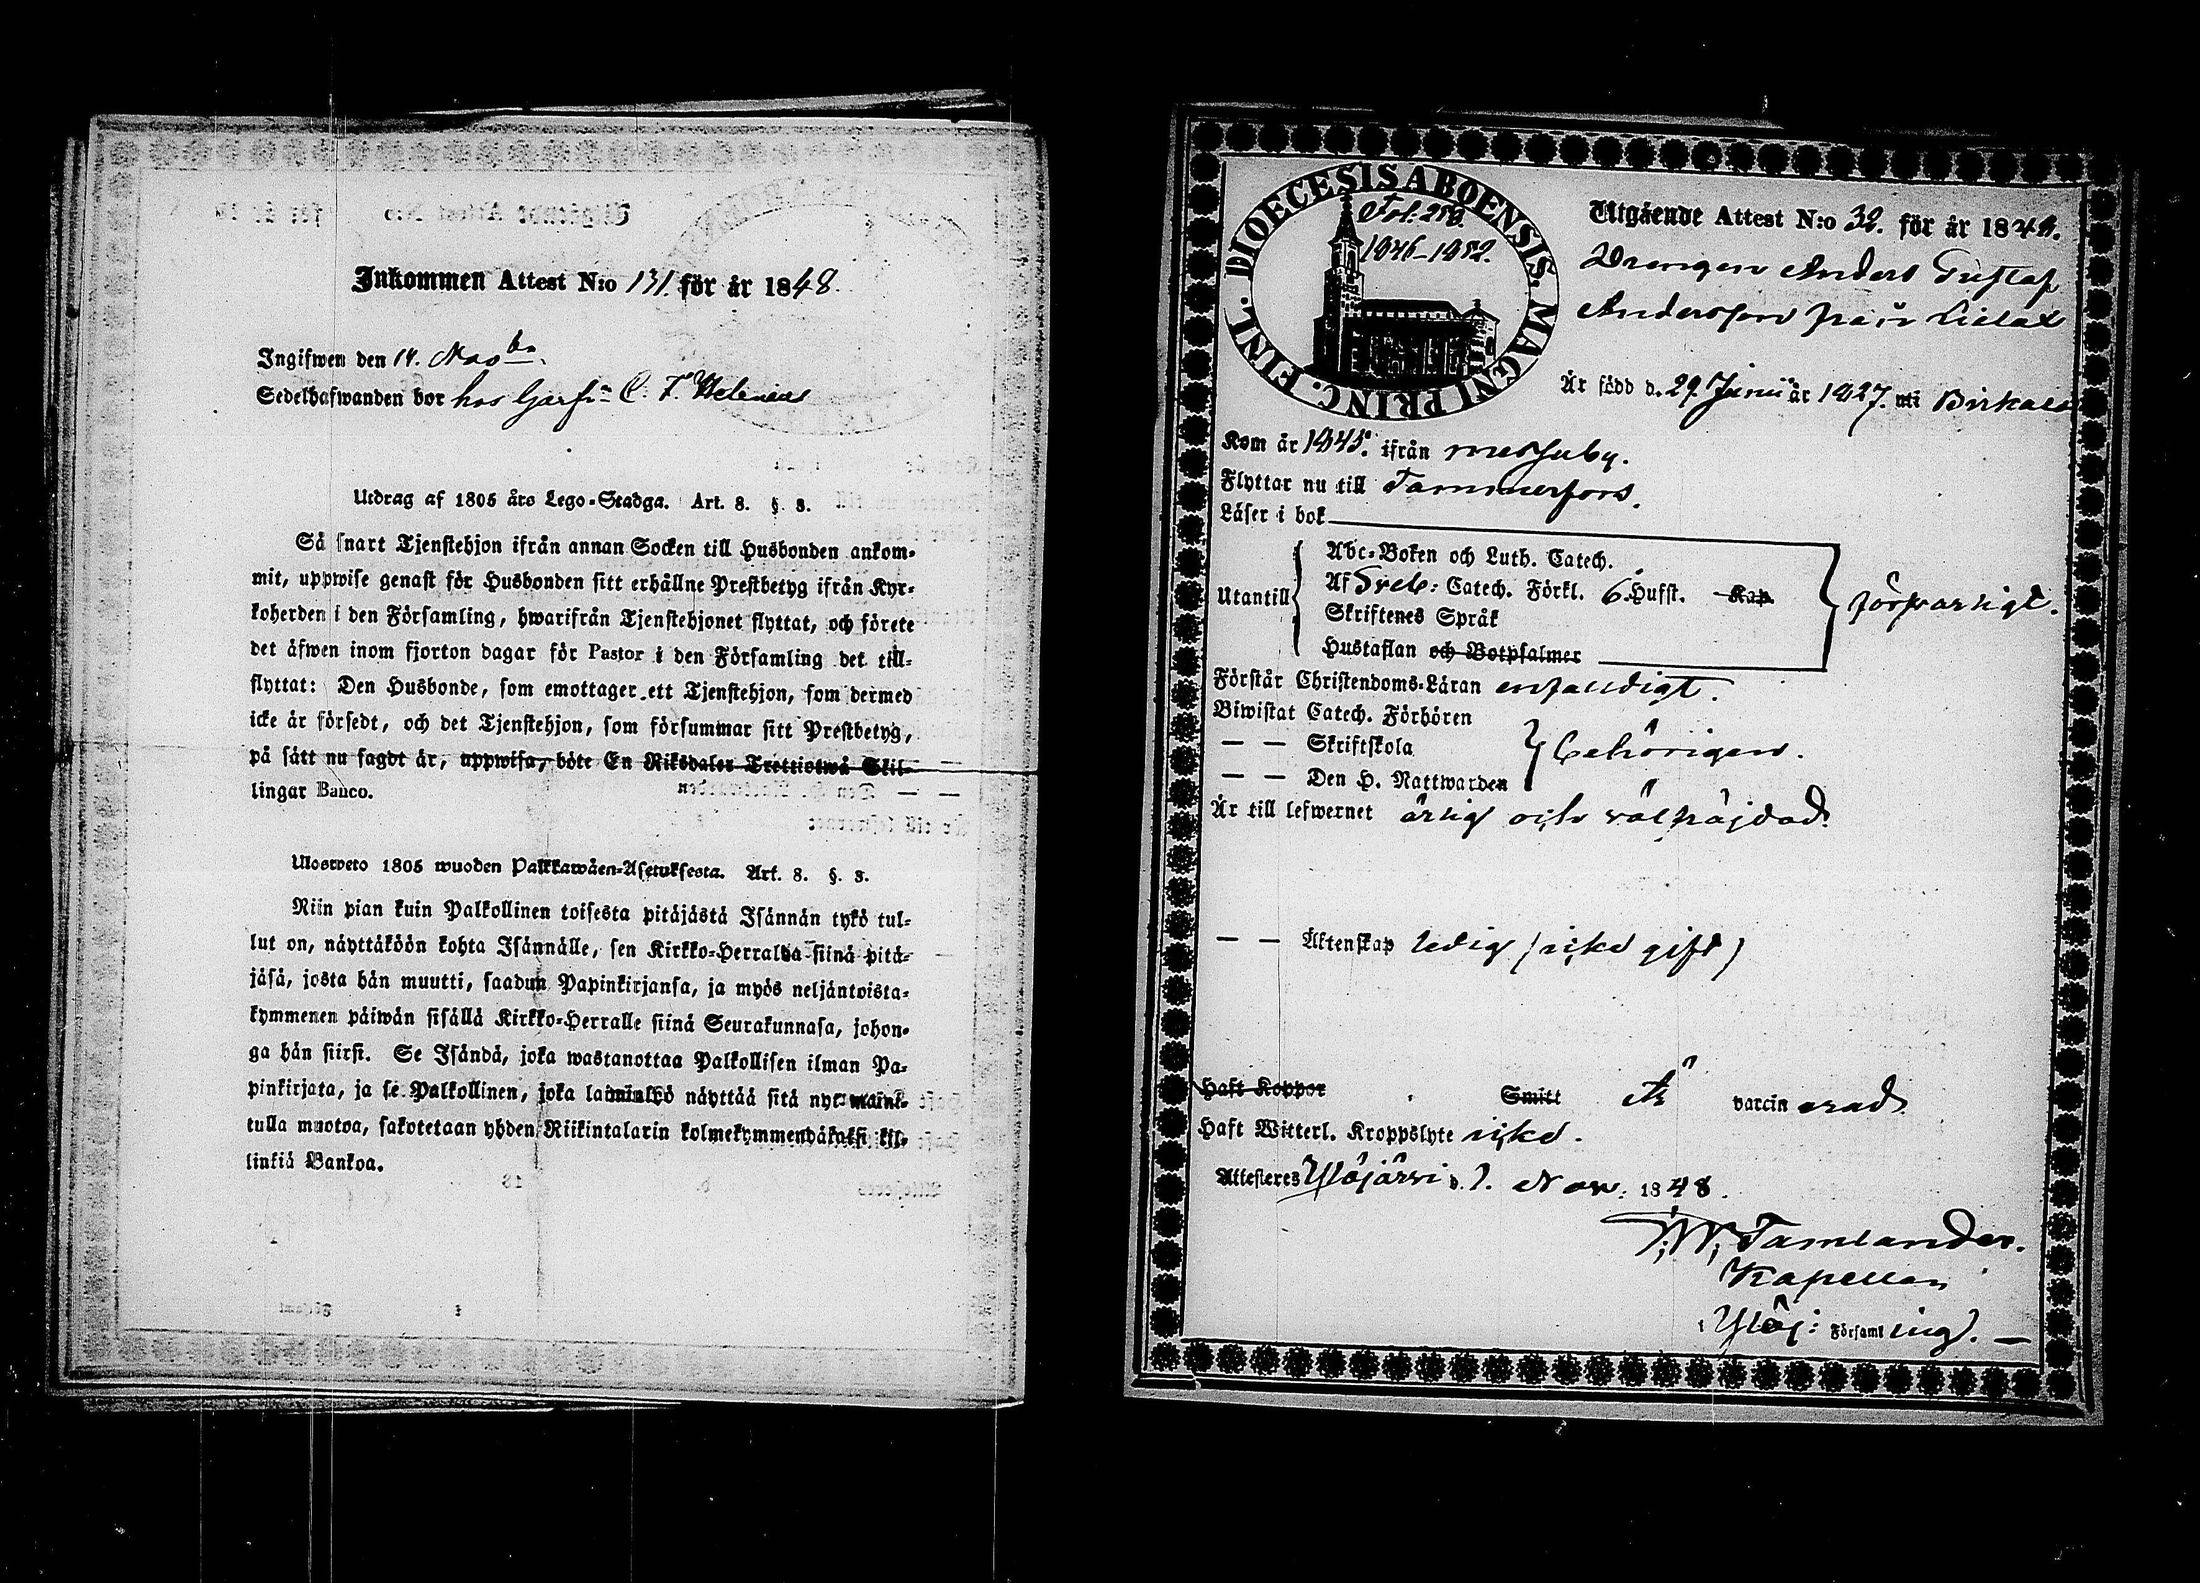 Inkommen Attest N:o 131. för år 1848.
Ingifwen den 14. Novbr.
Sedelhafwanden bor hos C. F. Helenius
Utdrag af 1805 års Lego-Stadga. Art. 8. §. 3.
Så snart Tjenstehjon ifrån annan Socken till Husbonden ankom-
mit, uppwise genast för Husbonden sitt erhållne Prestbetyg ifrån Kyr-
koherden i den Församling, hwarifrån Tjenstehjonet flyttat, och förete
det äfwen inom fjorton dagar för Pastor i den Församling det till-
flyttat: Den Husbonde, som emottager ett Tjenstehjon, som dermed
icke är försedt, och det Tjenstehjon, som försummar sitt Prestbetyg,
på sätt nu sagdt är, uppwisa, böte En Riksdaler Trettiotwå Skil-
lingar Banco.
Ulosweto 1805 wuoden Palkkawäen-Asetuksesta. Art. 8. §. 3.
Niin pian kuin Palkollinen toisesta pitäjästä Isännän tykö tul-
lut on, näyttäköön kohta Isännälle, sen Kirkko-Herralda siinä pitä-
jäsä, josta hän muutti, saadun Papinkirjansa, ja myös neljäntoista-
kymmenen päiwän sisällä Kirkko-Herralle siinä Seurakunnasa, johon-
ga hän siirsi. Se Isändä, joka wastanottaa Palkollisen ilman Pa-
pinkirjata, ja se Palkollinen, joka laiminlyö näyttää sitä nyt mainit-
tulla muotoa, sakotetaan yhden Riikintalarin kolmekymmendäkaksi kil-
linkiä Bankoa.
DIOECESIS ABOENSIS. MAGNI PRINC. FINL.
Fol. 259.
1846-1852.
Utgående Attest N:o 32. för år 1848.
Drengen Anders Gustaf
Andersson från Lielax
Är född d. 29. Junii år 1827. uti Birkala
Kom år 1845. ifrån Messuby.
Flyttar nu till Tammerfors.
Läser i bok
Utantill
Abc-Boken och Luth. Catech.
Af Sveb: Catech. Förkl. 6. Hufst. Kap.
Skriftenes Språk
Hustaflan och Botpsalmer
försvarligt.
Förstår Christendoms-Läran enfaldigt.
Biwistat Catech. Förhören
— — Skriftskola
— — Den H. Nattwarden
behörigen.
Är till lefwernet ärlig och välfräjdad.
— — Äktenskap ledig (icke gift)
Haft Koppor Smitt Är vaccinerad.
Haft Witterl. Kroppslyte icke.
Attesteres Ylöjärvi d. 7. Nov. 1848.
Tamlander.
Kapellan
i Ylöj: Församling. —